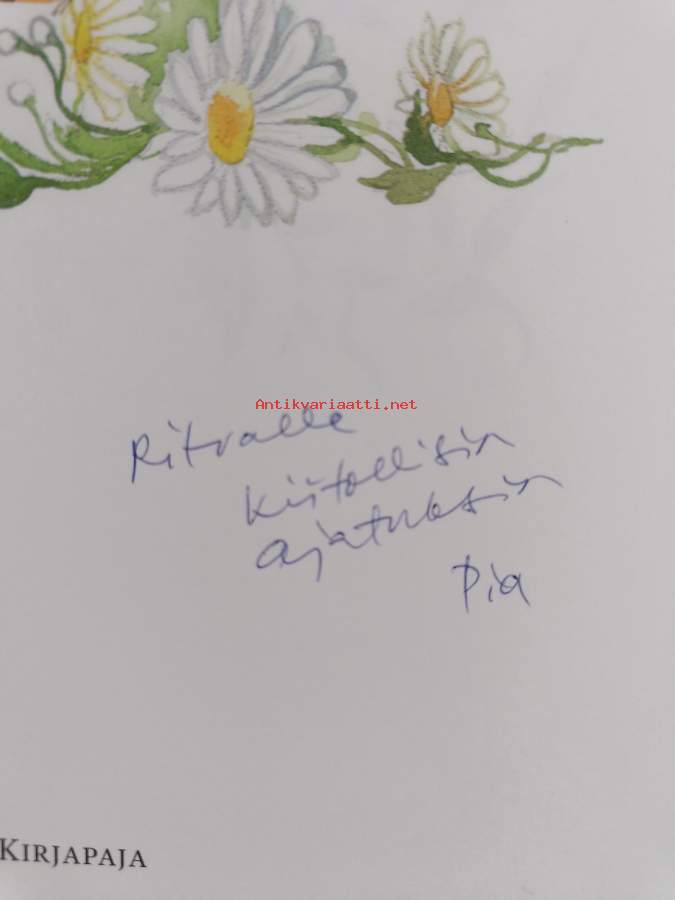 Antikvariaatti.net
Ritvalle
kiitollisin
ajatuksin
Pia
KIRJAPAJA